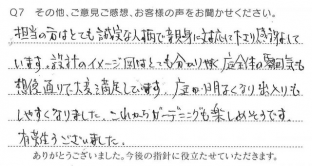 Q7 その他、ご意見ご感想、お客様の声をお聞かせください。
担当の方はとても誠実な人柄で親身に対応して下さり感謝して
います。設計のイメージ図はとても分かり易く庭全体の雰囲気も
想像通りで大変満足しています。庭が明るくなり出入りも
しやすくなりました。これからガーデニングも楽しめそうです。
有難うございました。
ありがとうございました。今後の指針に役立たせていただきます。